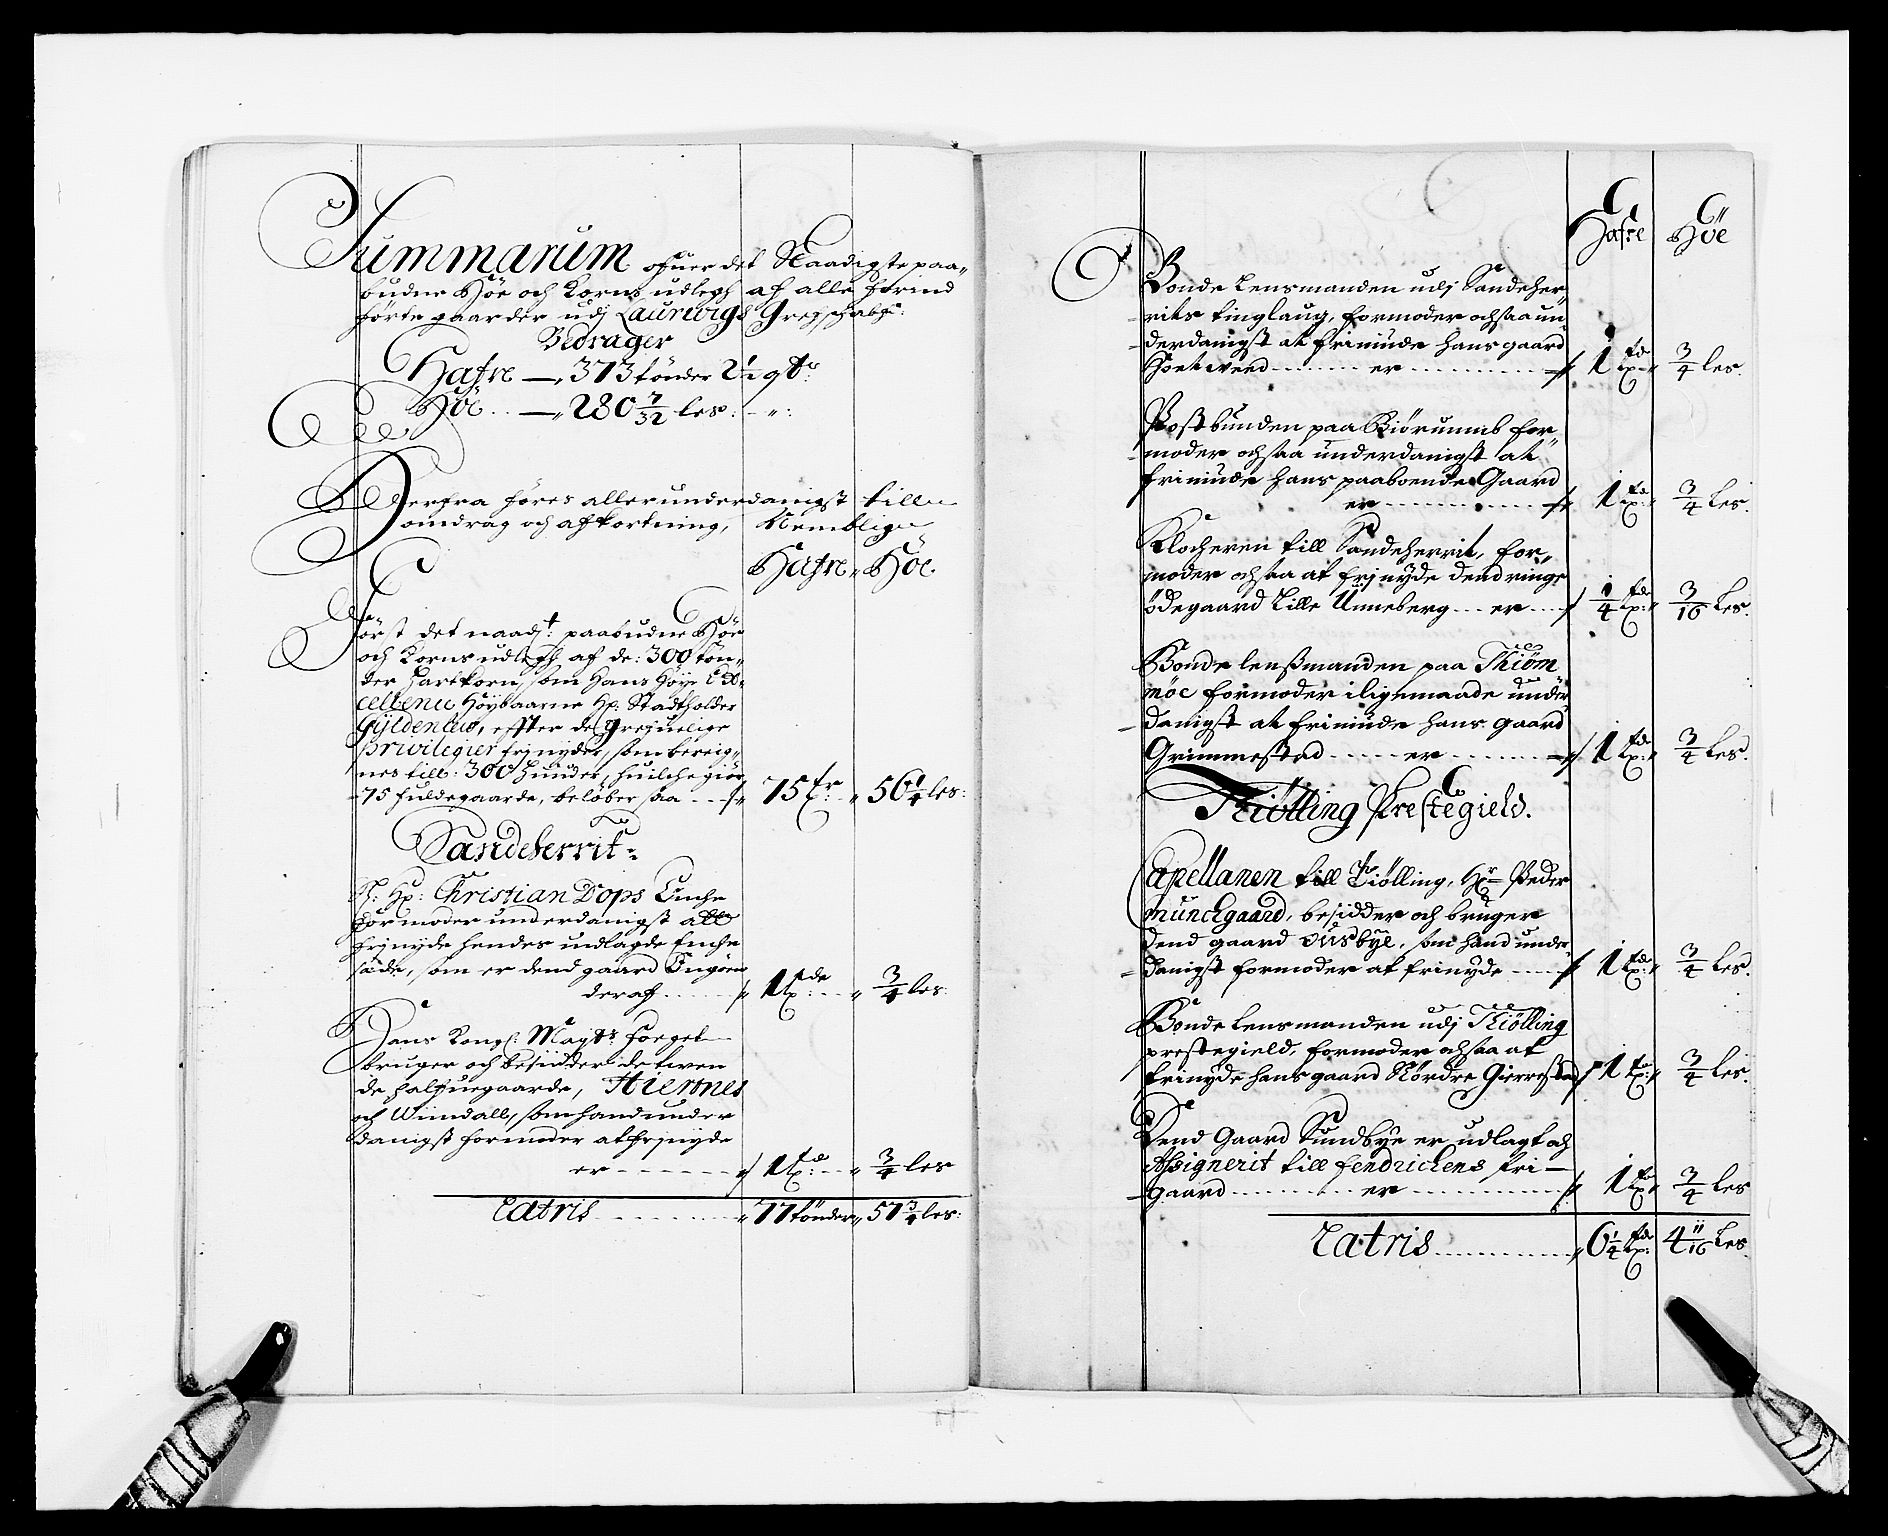 Summarum ofuer det Naadigste paa„
budne Höe och Korns udlegh af alle forind
förte gaarder udj Laurwigs Grefschabs:
Bedrager
Hafre — 373 tönder 2½ qtr
Höe .. — 280 7/32 les: - „:
Derfra föres allerunderdanigst till
omdrag och afkortning, Nemblig
Hafre „ Höe
Först det naadst: paabudne Höe
och Korns udlegh af de: 300 tön„
der hartkorn, som Hans Höye Ex„
cellence Höybaarne Hr: Stadtholder
Gyldenlew, effter de grefuelige
Priwilegier frjnyder, som bereig„
nes till: 300 Hunder, huilche giör
75 fuldegaarde, beløber saa .. 75 tr „ 56¼ les:
Sandeherrit:
S: Hr: Christian Dops Enche
formoder underdanigst att
frjnyde hendes udlagde Enche
säde, som er dend gaard
deraf ...... 1 tde „ 3/4 les
Hans Kongl: Mayts: foget
bruger och besidder de twen
de halfuegaarde, Hiertnes
och Wiindall, som hand under
danigst formoder at frjnyde
er ------- 1 td: „ 3/4 les
Latris ....... „ 77 tönder „ 57¾ les:
Hafre Höe
Bonde Lensmanden udj Sandeher„
rits tinglaug, formoder ochsaa un„
derdanigst at friniude hans gaard
er ....... 1 td „ 3/4 les.
Postbunden paa formoder
„moder ochsaa underdanigst at
friniude hans paaboende Gaard
er ....... 1 td: „ 3/4 les.
Klocheren till Sandeherrit, for„
moder ochsaa at frjnyde dend ringe
ödegaard Lille Unneberg ... er .... 1/4 td: „ 3/16 les.
Bonde lensmanden paa Thiöm
möe formoder iligemaade under
danigst at friniude hans gaard
Grimmestad ...... er ....... 1 td: „ 3/4 les.
Thiölling Prestegield.
Capellanen till Tiölling, Hr Peder
Munchgaard, besidder och bruger
dend gaard Ousbye, som hand under„
danigst formoder at frinyde ---- 1 td: „ 3/4 les.
Bonde lensmanden udj Thiölling
prestegield, formoder ochsaa at
frinyde hans gaard Nordre Gierrestad 1 td: „ 3/4 les.
Dend Gaard Sundbye er udlagt och
Assignerit till fendrichens fri —
gaard ........ er ........ 1 td „ 3/4 les
Latris .......... „ 6¼ td: 4 11/16 les